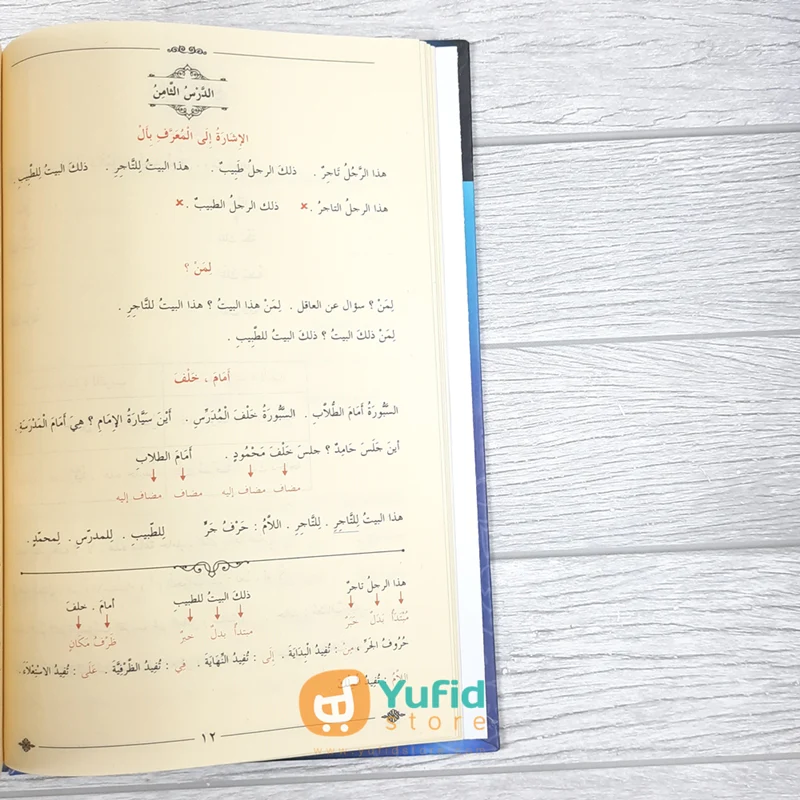 الدَّرْسُ الثَّامِنُ
الإِشَارَةُ إِلَى الْمُعَرَّفِ بِأَلْ
هذا الرَّجُلُ تَاجِرٌ . ذلكَ الرجلُ طَبِيبٌ . هذا البيتُ لِلتَّاجِرِ . ذلكَ البيتُ لِلطَّبِيبِ .
هذا الرجلُ التاجرُ . × ذلك الرجلُ الطبيبُ . ×
لِمَنْ ؟
لِمَنْ ؟ سؤال عن العاقل . لِمَنْ هذا البيتُ ؟ هذا البيتُ للتَّاجِرِ .
لِمَنْ ذلكَ البيتُ ؟ ذلكَ البيتُ للطَّبِيبِ .
أَمَامَ ، خَلْفَ
السَّبُّورَةُ أَمَامَ الطُّلَّابِ . السَّبُّورَةُ خَلْفَ الْمُدَرِّسِ . أَيْنَ سَيَّارَةُ الإِمَامِ ؟ هِيَ أَمَامَ الْمَدْرَسَةِ .
أينَ جَلَسَ حَامِدٌ ؟ جلسَ خَلْفَ مَحْمُودٍ . أَمَامَ الطلابِ
مضاف مضاف إليه مضاف مضاف إليه
هذا البيتُ لِلتَّاجِرِ . لِلتَّاجِرِ . اللاَّمُ : حَرْفُ جَرٍّ لِلطَّبِيبِ . لِلمدرّسِ . لِمحمّدٍ .
هذا الرجلُ تاجرٌ ذلكَ البيتُ للطبيبِ أمامَ . خلفَ
مُبْتَدَأٌ بَدَلٌ خَبَرٌ مبتدأٌ بدلٌ خبرٌ ظَرْفُ مَكَانٍ
حُرُوفُ الجَرِّ ، مِنْ : تُفِيدُ الْبِدَايَةَ . إِلَى : تُفِيدُ النِّهَايَةَ . فِي : تُفِيدُ الظَّرْفِيَّةَ . عَلَى : تُفِيدُ الاسْتِعْلَاءَ .
اللاَّمُ : تُفِيدُ
١٢
Yufid
store